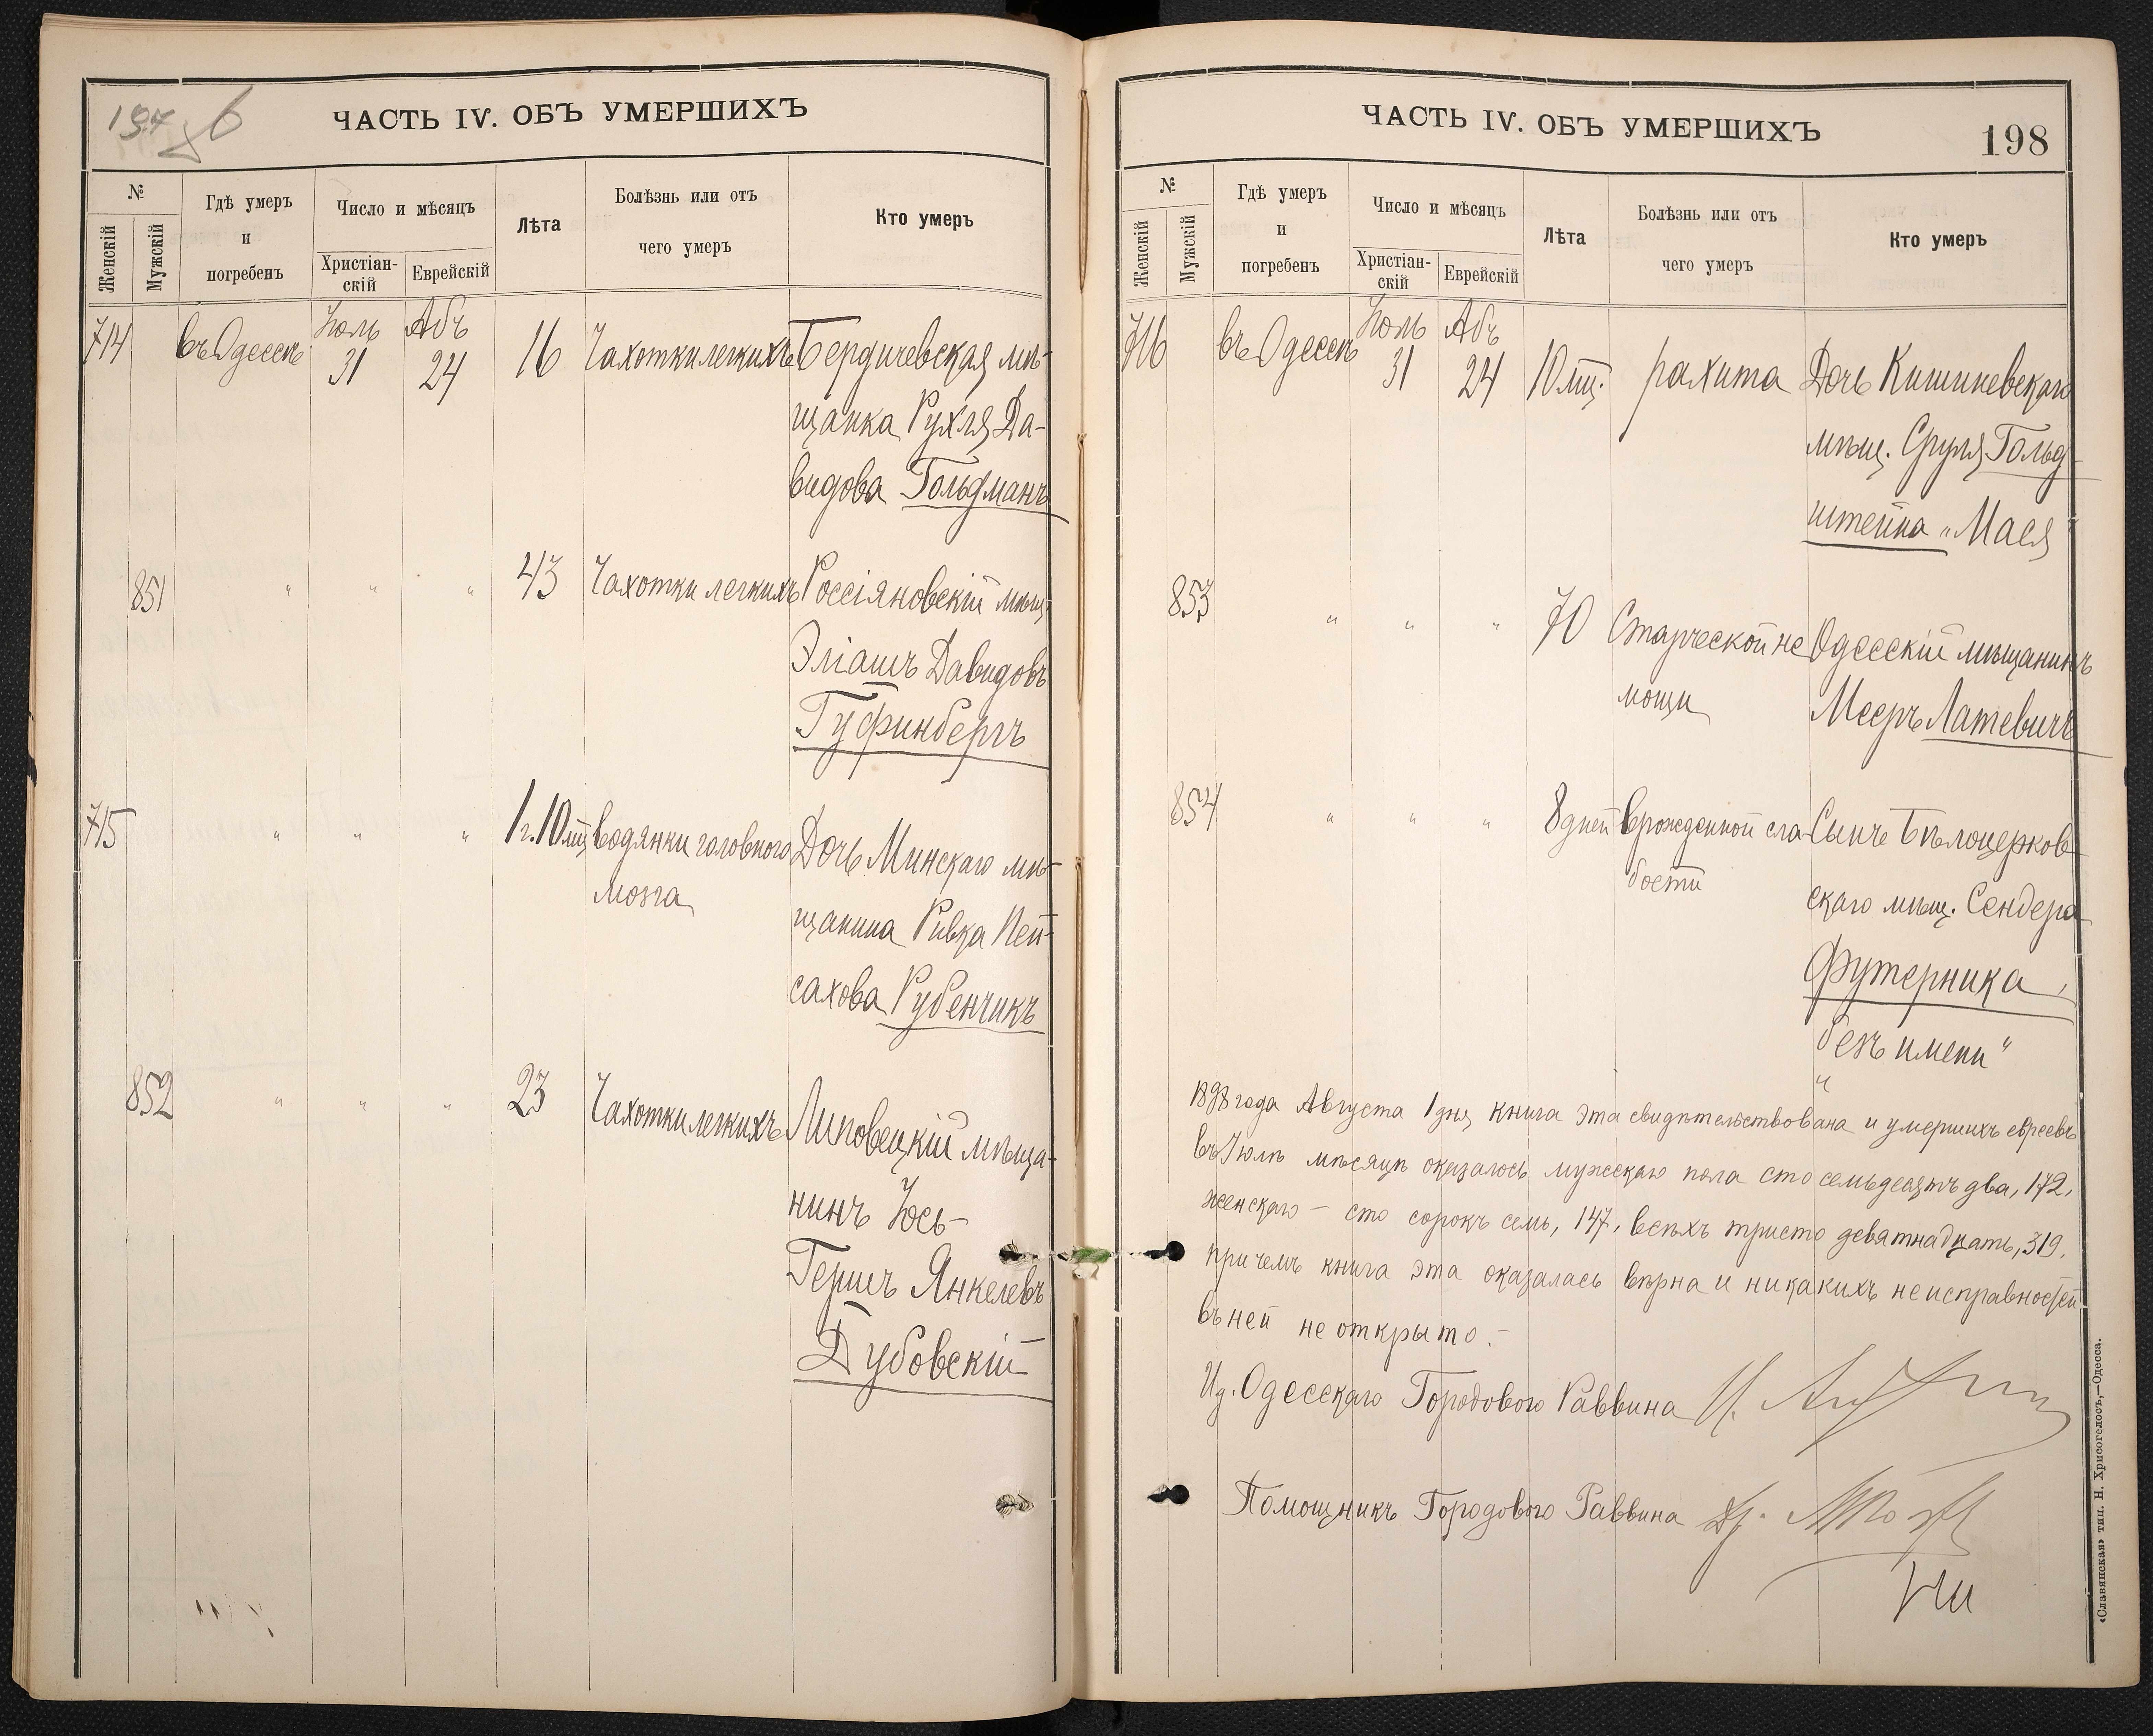 197 об
ЧАСТЬ IV. ОБЪ УМЕРШИХЪ
№
Женскій
Мужскій
Гдѣ умеръ
и
погребенъ
Число и мѣсяцъ
Христіан-
скій
Еврейскій
Лѣта
Болѣзнь или отъ
чего умеръ
Кто умеръ
714 въ Одессѣ Іюль 31 Абъ 24 16 Чахотки легкихъ Бердичевская мѣ-
щанка Рухля Да-
видова Гольдманъ
851 " " " 43 Чахотки легкихъ Россіяновскій мѣщ.
Эліашъ Давидовъ
Гуфинбергъ
715 " " " 1 г. 10 мц. водянки головного Дочь Минскаго мѣ-
мозга
щанина Ривка Пей-
сахова Рубенчикъ
852 " " " 23 Чахотки легкихъ Липовецкій мѣща-
нинъ Юсь-
Гершъ Янкелевъ
Дубовскій
ЧАСТЬ IV. ОБЪ УМЕРШИХЪ
198
№
Женскій
Мужскій
Гдѣ умеръ
и
погребенъ
Число и мѣсяцъ
Христіан-
скій
Еврейскій
Лѣта
Болѣзнь или отъ
чего умеръ
Кто умеръ
716 въ Одессѣ Іюль 31 Абъ 24 10 мц. рахита Дочь Кишиневскаго
мѣщ. Сруля Гольд-
штейна „Мася"
853 " " " 70 Старческой не Одесскій мѣщанинъ
мощи Мееръ Латевичъ
854 " " " 8 дней врожденной сла- Сынъ Бѣлоцерков-
бости
скаго мѣщ. Сендера
Футерника,
„безъ имени"
1898 года Августа 1 дня книга эта свидѣтельствована и умершихъ евреевъ
въ Іюлѣ мѣсяцѣ оказалось мужскаго пола сто семьдесятъ два, 172,
женскаго – сто сорокъ семь, 147, всѣхъ тристо девятнадцать, 319,
при чемъ книга эта оказалась вѣрна и никакихъ неисправностей
въ ней не открыто.-
И.д. Одесскаго Городового Раввина
Помощникъ Городового Раввина
«Славянская» тип. Н. Хрисогелосъ,—Одесса.